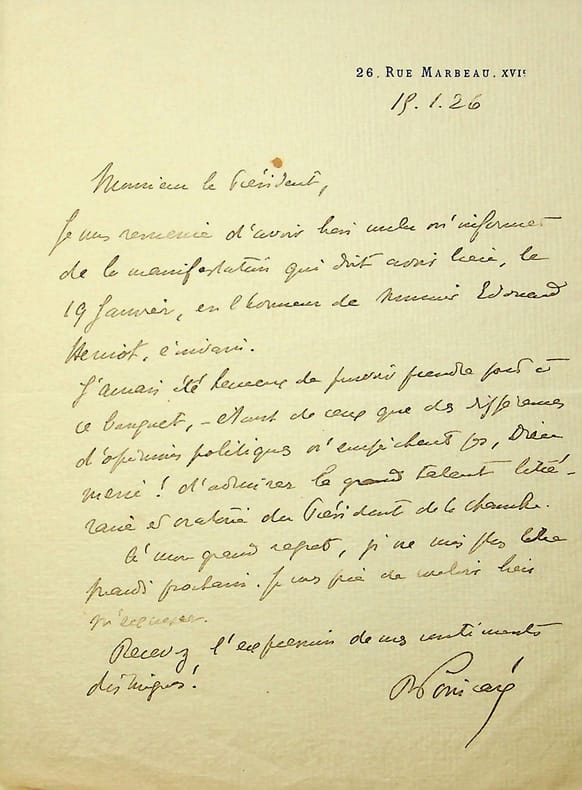 26, RUE MARBEAU. XVIᵉ
15.1.26
Monsieur le Président,
Je vous remercie d'avoir bien voulu m'informer
de la manifestation qui doit avoir lieu, le
19 Janvier, en l'honneur de Monsieur Edouard
Herriot, écrivain.
J'aurais été heureux de pouvoir prendre part à
ce banquet, – étant de ceux que des différences
d'opinions politiques n'empêchent pas, Dieu
merci ! d'admirer le grand talent litté-
raire et oratoire du Président de la Chambre.
A mon grand regret, je ne suis plus libre
mardi prochain. Je vous prie de vouloir bien
m'excuser.
Recevez l'expression de mes sentiments
distingués.
R Poincaré